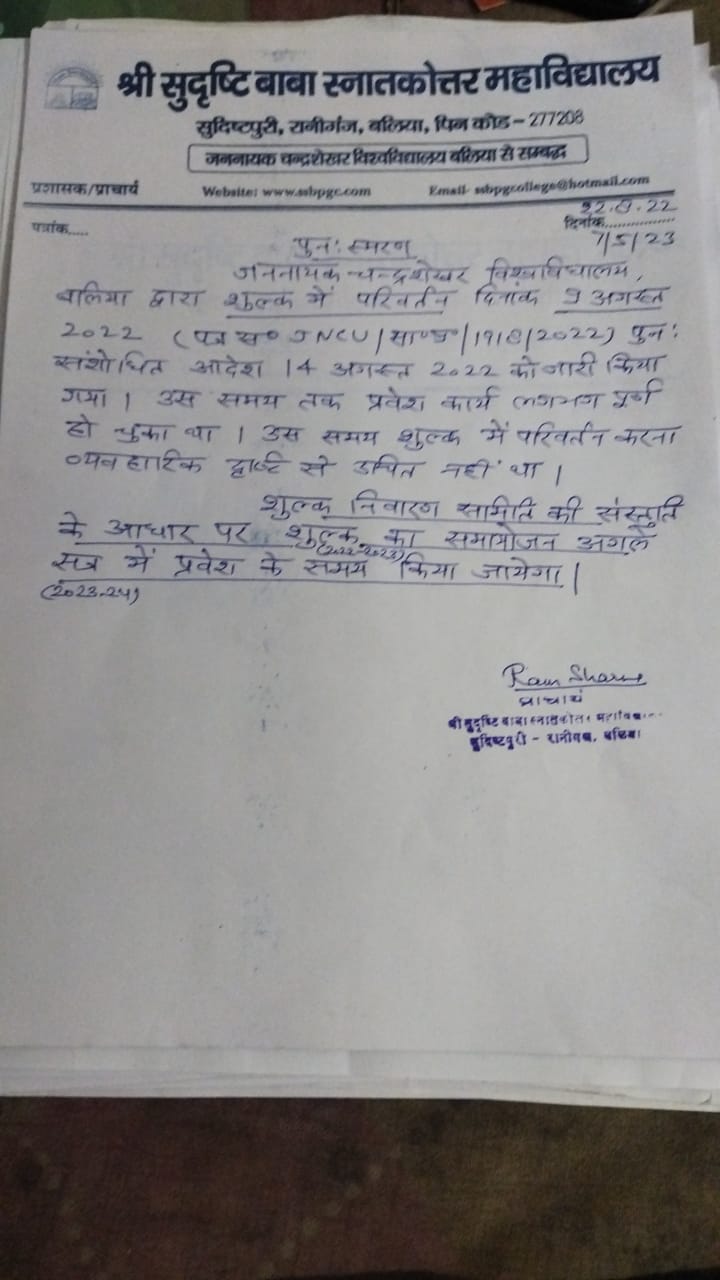 श्री सुदृष्टि बाबा स्नातकोत्तर महाविद्यालय
सुदिष्टपुरी, रानीगंज, बलिया, पिन कोड - 277208
जननायक चन्द्रशेखर विश्वविद्यालय बलिया से सम्बद्ध
प्रशासक/प्राचार्य Website: www.ssbpgc.com Email- ssbpgcollege@hotmail.com
22.8.22
पत्रांक..... दिनांक................
7/5/23
पुनः स्मरण
जननायक चन्द्रशेखर विश्वविद्यालय,
बलिया द्वारा शुल्क में परिवर्तन दिनांक 9 अगस्त
2022 (पत्र स० JNCU/सा०प्र०/1918/2022) पुनः
संशोधित आदेश 14 अगस्त 2022 को जारी किया
गया। उस समय तक प्रवेश कार्य लगभग पूर्ण
हो चुका था। उस समय शुल्क में परिवर्तन करना
व्यवहारिक दृष्टि से उचित नहीं था।
शुल्क निवारण समिति की संस्तुति
के आधार पर शुल्क का समायोजन अगले
(2022-2023)
सत्र में प्रवेश के समय किया जायेगा।
(2023-24)
Ram Sharma
प्राचार्य
श्री सुदृष्टि बाबा स्नातकोत्तर महाविद्या
सुदिष्टपुरी - रानीगंज, बलिया